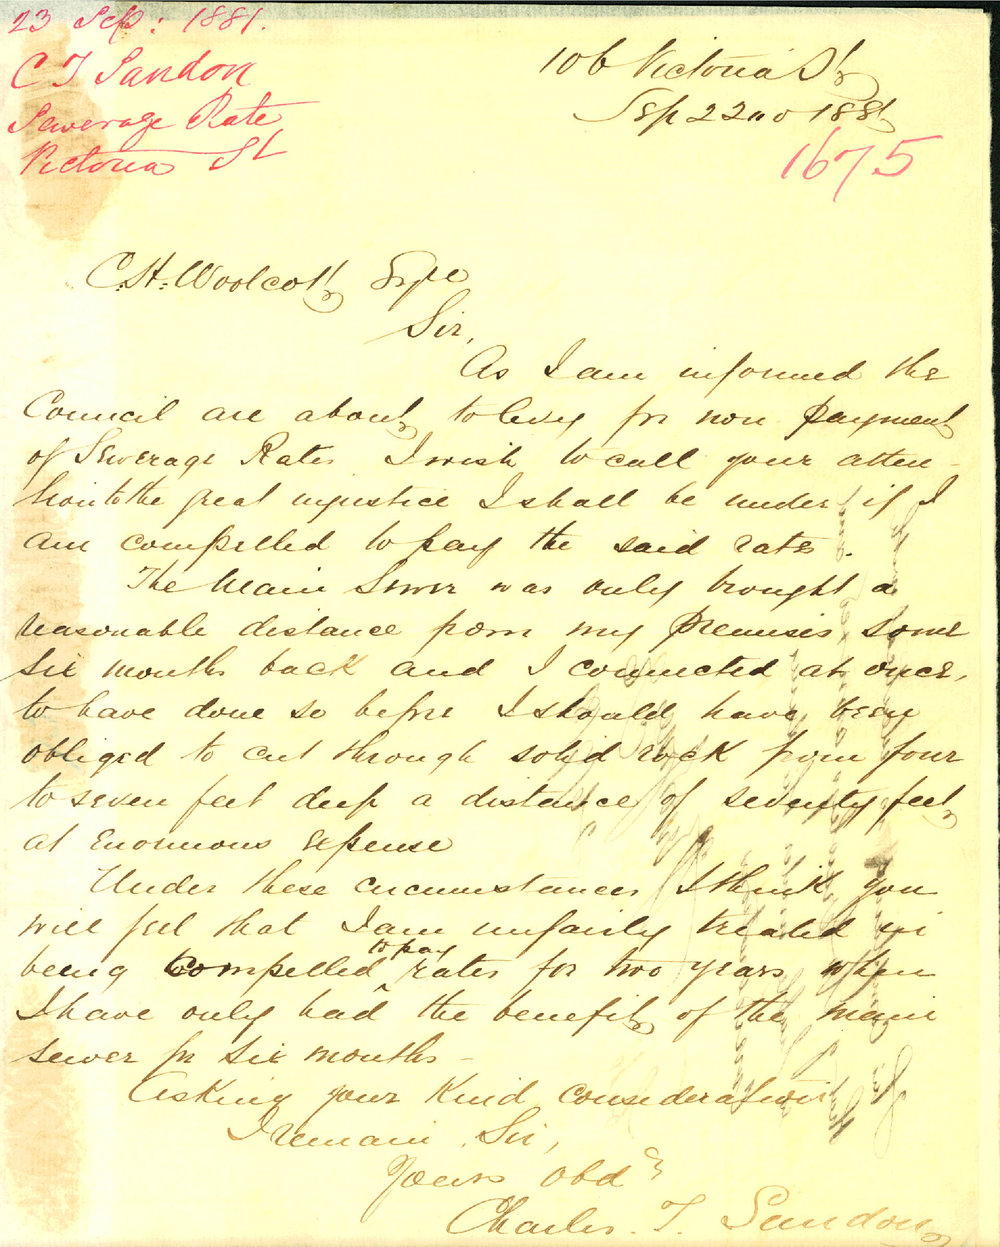 23 Sep: 1881.
C T Sandon
Sewerage Rate
Victoria St
106 Victoria St
Sep 22nd 1881
1675
C. H. Woolcott Esqre
Sir,
As I am informed the
Council are about to levy for non payment
of Sewerage Rates I wish to call your atten-
tion to the great injustice I shall be under if I
am compelled to pay the said rates.
The Main Sewer was only brought a
reasonable distance from my Premises some
six months back and I connected at once,
to have done so before I should have been
obliged to cut through solid rock from four
to seven feet deep a distance of seventy feet
at enormous expense
Under these circumstances I think you
will feel that I am unfairly treated in
being compelled to pay rates for two years when
I have only had the benefit of the main
sewer for six months -
Asking your kind consideration
I remain Sir,
Yours Obdt
Charles. T. Sandon